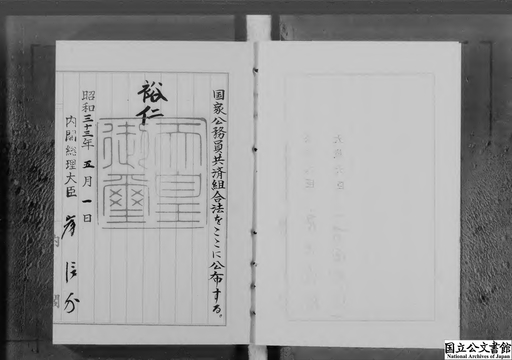 国家公務員共済組合法をここに公布する。
裕仁
天皇御璽
昭和三十三年五月一日
内閣総理大臣 岸信介
内閣
国立公文書館
National Archives of Japan